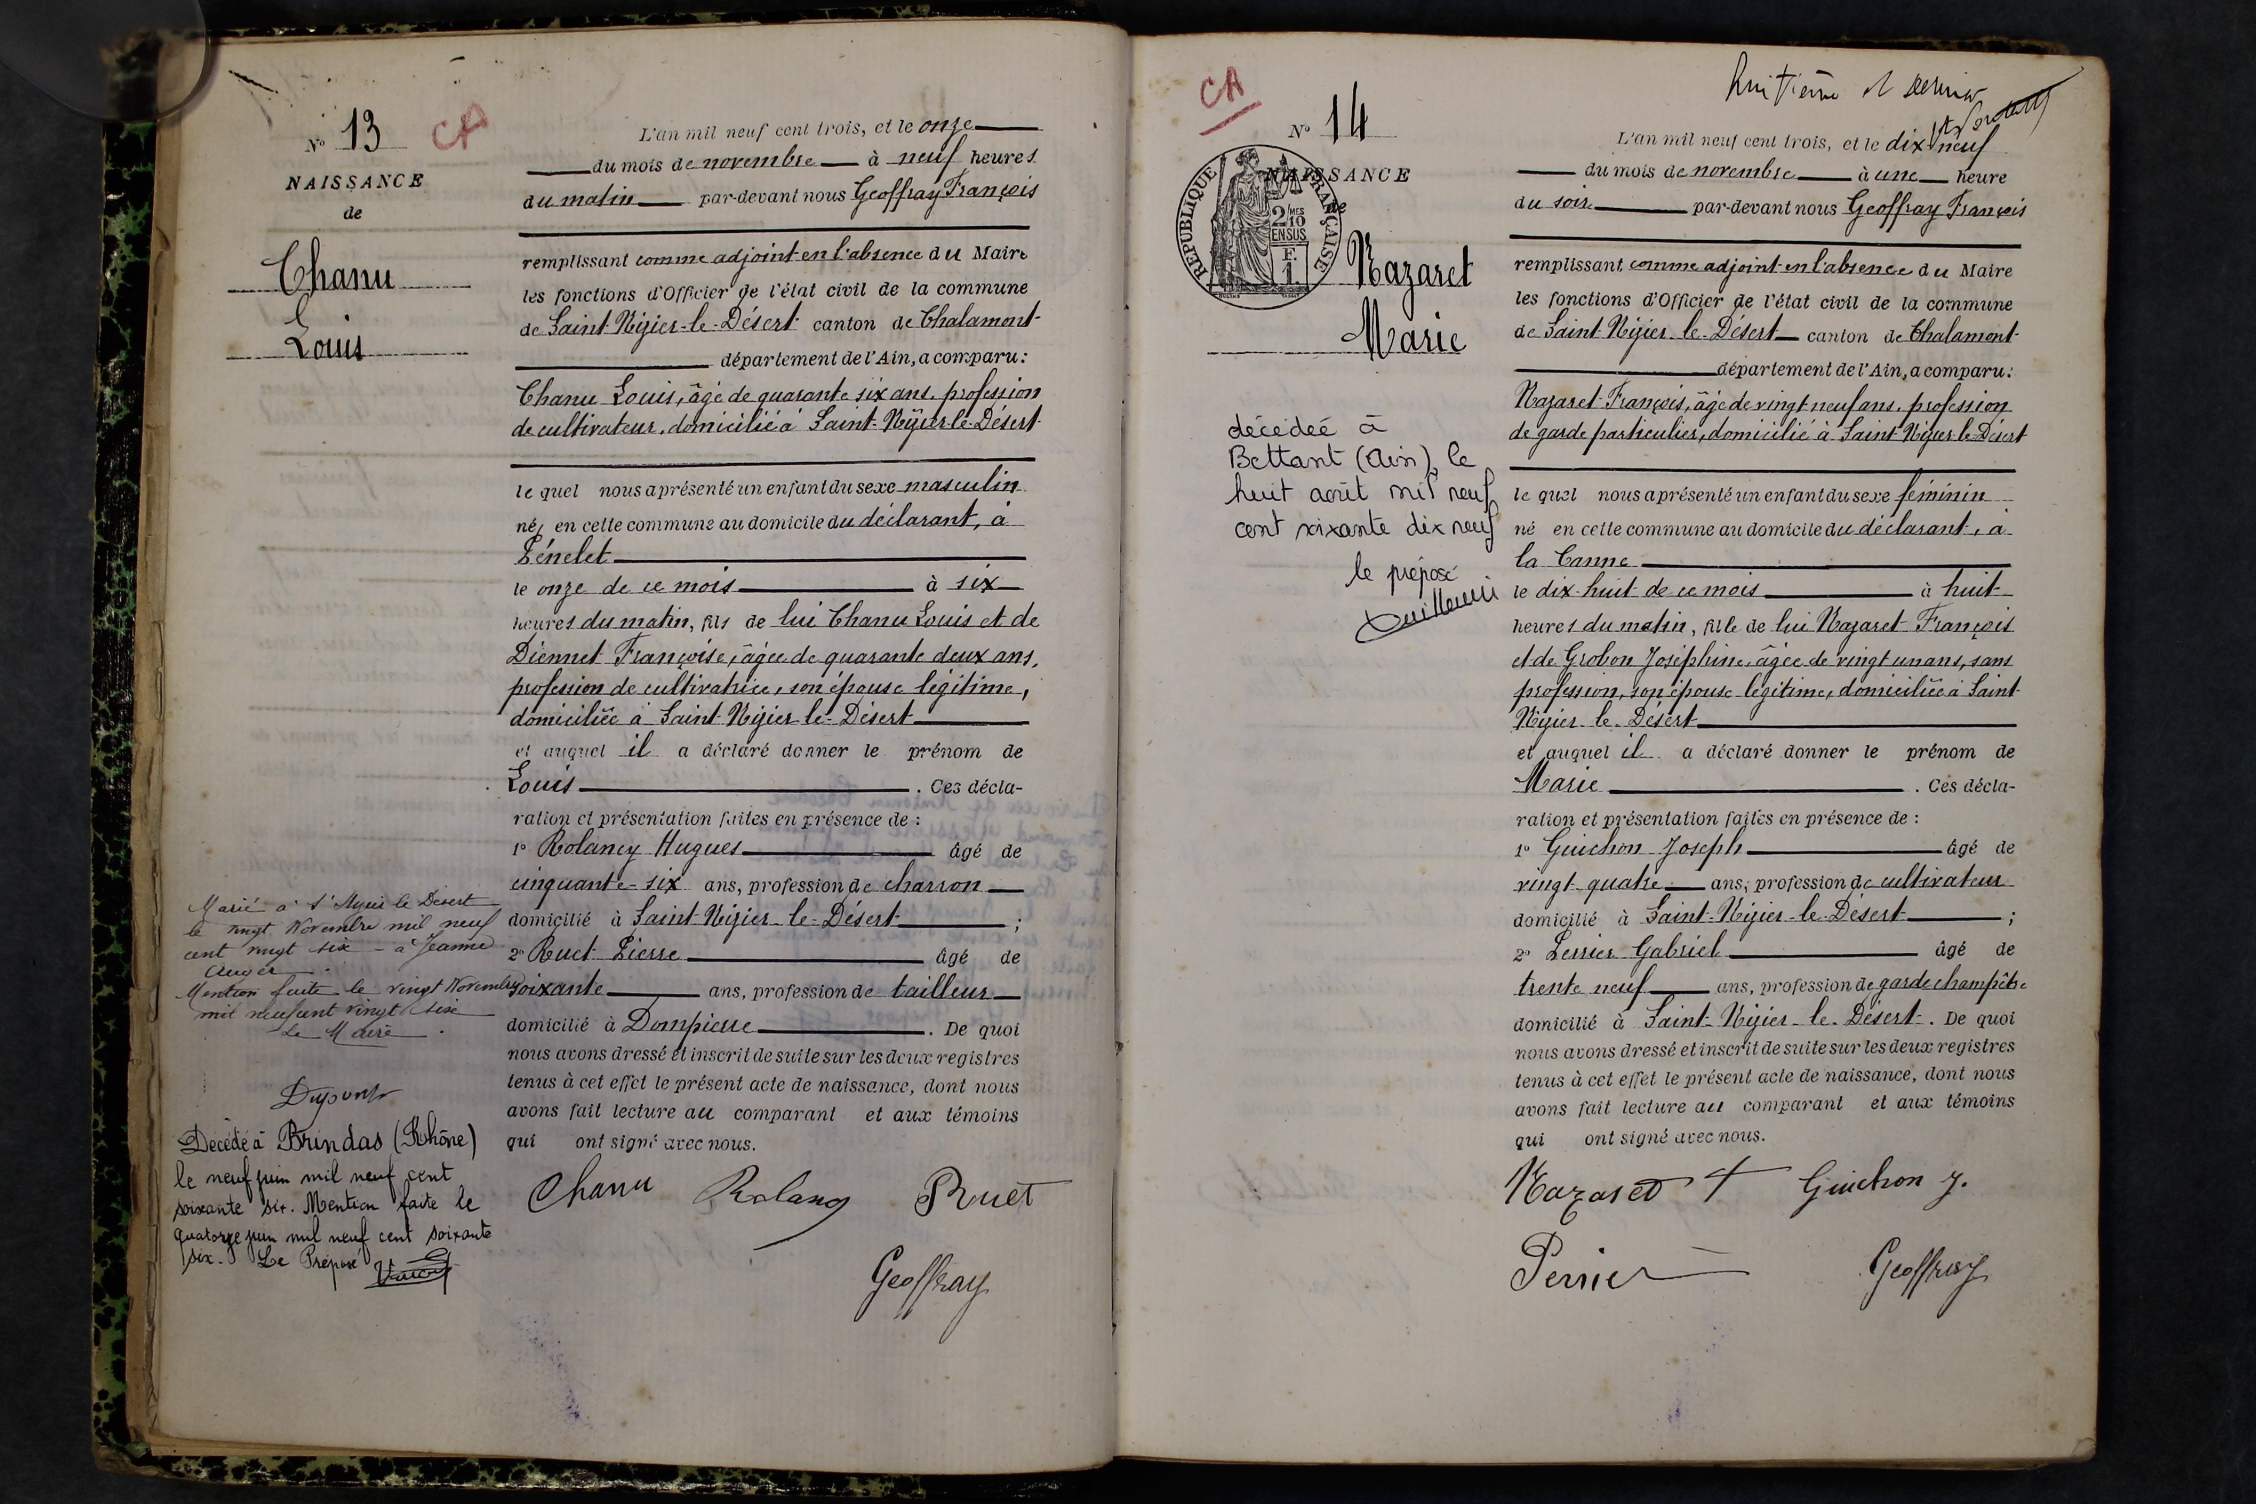 N° 13
CA
NAISSANCE
de
Chanu
Louis
Marié à St Nizier le Désert
le vingt Novembre mil neuf
cent vingt six - à Jeanne
Auger
Mention faite le vingt Novembre
mil neuf cent vingt six
Le Maire
Dupont
Décédé à Brindas (Rhône)
le neuf juin mil neuf cent
soixante six. Mention faite le
quatorze juin mil neuf cent soixante
six. Le Préposé
L'an mil neuf cent trois, et le onze
du mois de novembre à neuf heures
du matin par-devant nous Geoffray François
remplissant comme adjoint en l'absence du Maire
les fonctions d'Officier de l'état civil de la commune
de Saint-Nizier-le-Désert canton de Chalamont
département de l'Ain, a comparu :
Chanu Louis, âgé de quarante six ans, profession
de cultivateur, domicilié à Saint-Nizier-le-Désert
lequel nous a présenté un enfant du sexe masculin
né, en cette commune au domicile du déclarant, à
Pénelet
le onze de ce mois à six
heures du matin, fils de lui Chanu Louis et de
Diennet Françoise, âgée de quarante deux ans,
profession de cultivatrice, son épouse légitime,
domiciliée à Saint-Nizier-le-Désert
et auquel il a déclaré donner le prénom de
Louis . Ces décla-
ration et présentation faites en présence de :
1° Rolancy Hugues âgé de
cinquante-six ans, profession de charron
domicilié à Saint-Nizier-le-Désert ;
2° Ruet Pierre âgé de
soixante ans, profession de tailleur
domicilié à Dompierre . De quoi
nous avons dressé et inscrit de suite sur les deux registres
tenus à cet effet le présent acte de naissance, dont nous
avons fait lecture au comparant et aux témoins
qui ont signé avec nous.
Chanu Rolancy Ruet
Geoffray
CA
N° 14
NAISSANCE
de
RÉPUBLIQUE FRANÇAISE
2/10MES
EN SUS
F.
1
Nazaret
Marie
décédée à
Bettant (Ain), le
huit août mil neuf
cent soixante dix neuf
le préposé
huitième et dernier
L'an mil neuf cent trois, et le dix-neuf
du mois de novembre à une heure
du soir par-devant nous Geoffray François
remplissant comme adjoint en l'absence du Maire
les fonctions d'Officier de l'état civil de la commune
de Saint-Nizier-le-Désert canton de Chalamont
département de l'Ain, a comparu :
Nazaret François, âgé de vingt neuf ans, profession
de garde particulier, domicilié à Saint-Nizier-le-Désert
lequel nous a présenté un enfant du sexe féminin
né en cette commune au domicile du déclarant, à
la Canne
le dix-huit de ce mois à huit
heures du matin, fille de lui Nazaret François
et de Grobon Joséphine, âgée de vingt un ans, sans
profession, son épouse légitime, domiciliée à Saint-
Nizier-le-Désert
et auquel il a déclaré donner le prénom de
Marie . Ces décla-
ration et présentation faites en présence de :
1° Guichon Joseph âgé de
vingt-quatre ans, profession de cultivateur
domicilié à Saint-Nizier-le-Désert ;
2° Perrier Gabriel âgé de
trente neuf ans, profession de garde champêtre
domicilié à Saint-Nizier-le-Désert. De quoi
nous avons dressé et inscrit de suite sur les deux registres
tenus à cet effet le présent acte de naissance, dont nous
avons fait lecture au comparant et aux témoins
qui ont signé avec nous.
Nazaret f Guichon J.
Perrier Geoffray